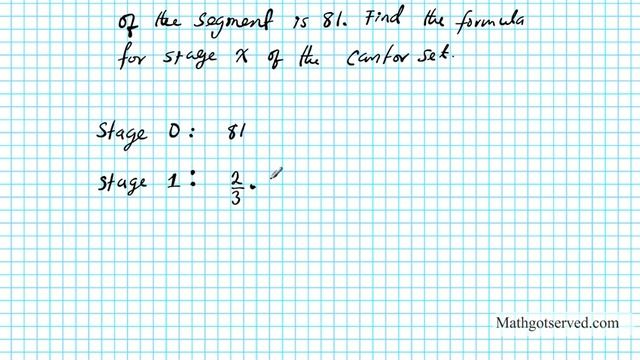 of the segment is 81. Find the formula
for stage x of the cantor set.
Stage 0: 81
Stage 1: 2/3 .
Mathgotserved.com